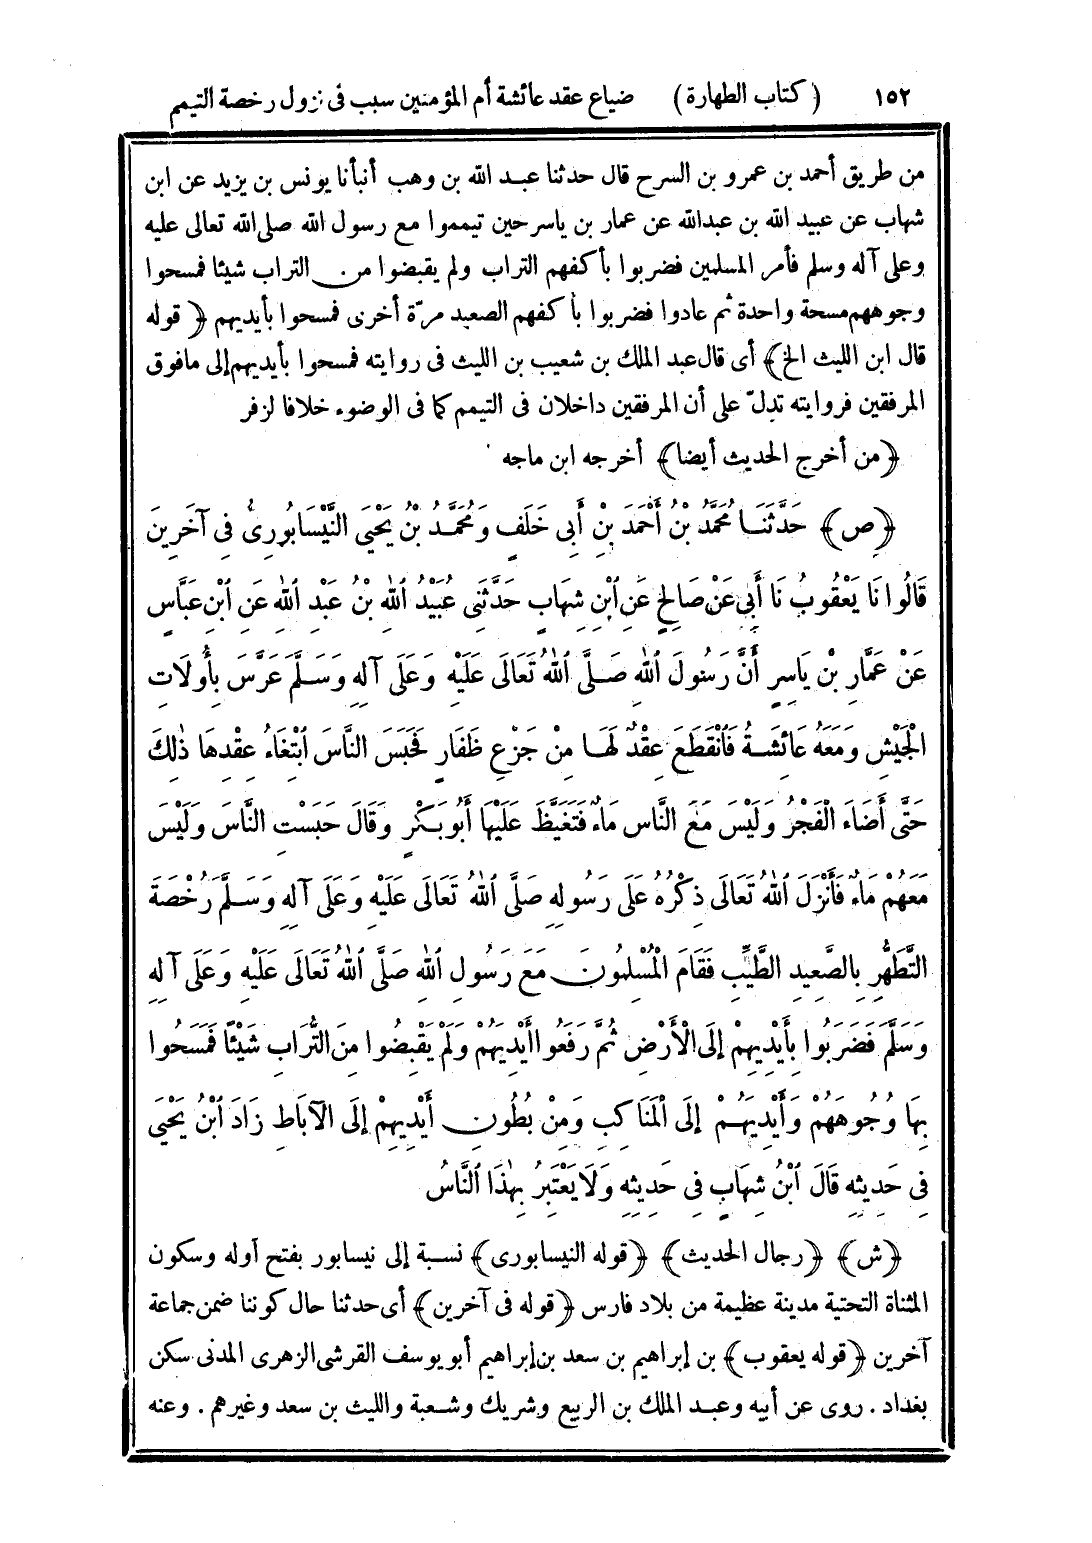 ١٥٢ (كتاب الطهارة) ضياع عقد عائشة أم المؤمنين سبب فى نزول رخصة التيمم
من طريق أحمد بن عمرو بن السرح قال حدثنا عبد الله بن وهب أنبأنا يونس بن يزيد عن ابن
شهاب عن عبيد الله بن عبدالله عن عمار بن ياسر حين تيمموا مع رسول الله صلى الله تعالى عليه
وعلى آله وسلم فأمر المسلمين فضربوا بأكفهم التراب ولم يقبضوا من التراب شيئا فمسحوا
وجوههم مسحة واحدة ثم عادوا فضربوا بأكفهم الصعيد مرّة أخرى فمسحوا بأيديهم ﴿ قوله
قال ابن الليث الخ﴾ أى قال عبد الملك بن شعيب بن الليث فى روايته فمسحوا بأيديهم إلى مافوق
المرفقين فروايته تدلّ على أن المرفقين داخلان فى التيمم كما فى الوضوء خلافا لزفر
﴿من أخرج الحديث أيضا﴾ أخرجه ابن ماجه
﴿ص﴾ حَدَّثَنَا مُحَمَّدُ بْنُ أَحْمَدَ بْنِ أَبِى خَلَفٍ وَمُحَمَّدُ بْنُ يَحْيَى النَّيْسَابُورِىُّ فِى آخَرِينَ
قَالُوا نَا يَعْقُوبُ نَا أَبِى عَنْ صَالِحٍ عَنِ ٱبْنِ شِهَابٍ حَدَّثَنِى عُبَيْدُ ٱللهِ بْنُ عَبْدِ ٱللهِ عَنِ ٱبْنِ عَبَّاسٍ
عَنْ عَمَّارِ بْنِ يَاسِرٍ أَنَّ رَسُولَ ٱللهِ صَلَّى ٱللهُ تَعَالَى عَلَيْهِ وَعَلَى آلِهِ وَسَلَّمَ عَرَّسَ بِأُولَاتِ
الْجَيْشِ وَمَعَهُ عَائِشَةُ فَٱنْقَطَعَ عِقْدٌ لَهَا مِنْ جَزْعِ ظَفَارِ فَحَبَسَ النَّاسَ ٱبْتِغَاءُ عِقْدِهَا ذٰلِكَ
حَتَّى أَضَاءَ الْفَجْرُ وَلَيْسَ مَعَ النَّاسِ مَاءٌ فَتَغَيَّظَ عَلَيْهَا أَبُو بَكْرٍ وَقَالَ حَبَسْتِ النَّاسَ وَلَيْسَ
مَعَهُمْ مَاءٌ فَأَنْزَلَ ٱللهُ تَعَالَى ذِكْرُهُ عَلَى رَسُولِهِ صَلَّى ٱللهُ تَعَالَى عَلَيْهِ وَعَلَى آلِهِ وَسَلَّمَ رُخْصَةَ
التَّطَهُّرِ بِالصَّعِيدِ الطَّيِّبِ فَقَامَ الْمُسْلِمُونَ مَعَ رَسُولِ ٱللهِ صَلَّى ٱللهُ تَعَالَى عَلَيْهِ وَعَلَى آلِهِ
وَسَلَّمَ فَضَرَبُوا بِأَيْدِيهِمْ إِلَى الْأَرْضِ ثُمَّ رَفَعُوا أَيْدِيَهُمْ وَلَمْ يَقْبِضُوا مِنَ التُّرَابِ شَيْئًا فَمَسَحُوا
بِهَا وُجُوهَهُمْ وَأَيْدِيَهُمْ إِلَى الْمَنَاكِبِ وَمِنْ بُطُونِ أَيْدِيهِمْ إِلَى الْآبَاطِ زَادَ ٱبْنُ يَحْيَى
فِى حَدِيثِهِ قَالَ ٱبْنُ شِهَابٍ فِى حَدِيثِهِ وَلَا يَعْتَبِرُ بِهٰذَا النَّاسُ
﴿ش﴾ ﴿رجال الحديث﴾ ﴿قوله النيسابورى﴾ نسبة إلى نيسابور بفتح أوله وسكون
المثناة التحتية مدينة عظيمة من بلاد فارس ﴿قوله فى آخرين﴾ أى حدثنا حال كوننا ضمن جماعة
آخرين ﴿قوله يعقوب﴾ بن إبراهيم بن سعد بن إبراهيم أبو يوسف القرشى الزهرى المدنى سكن
بغداد. روى عن أبيه وعبد الملك بن الربيع وشريك وشعبة والليث بن سعد وغيرهم. وعنه